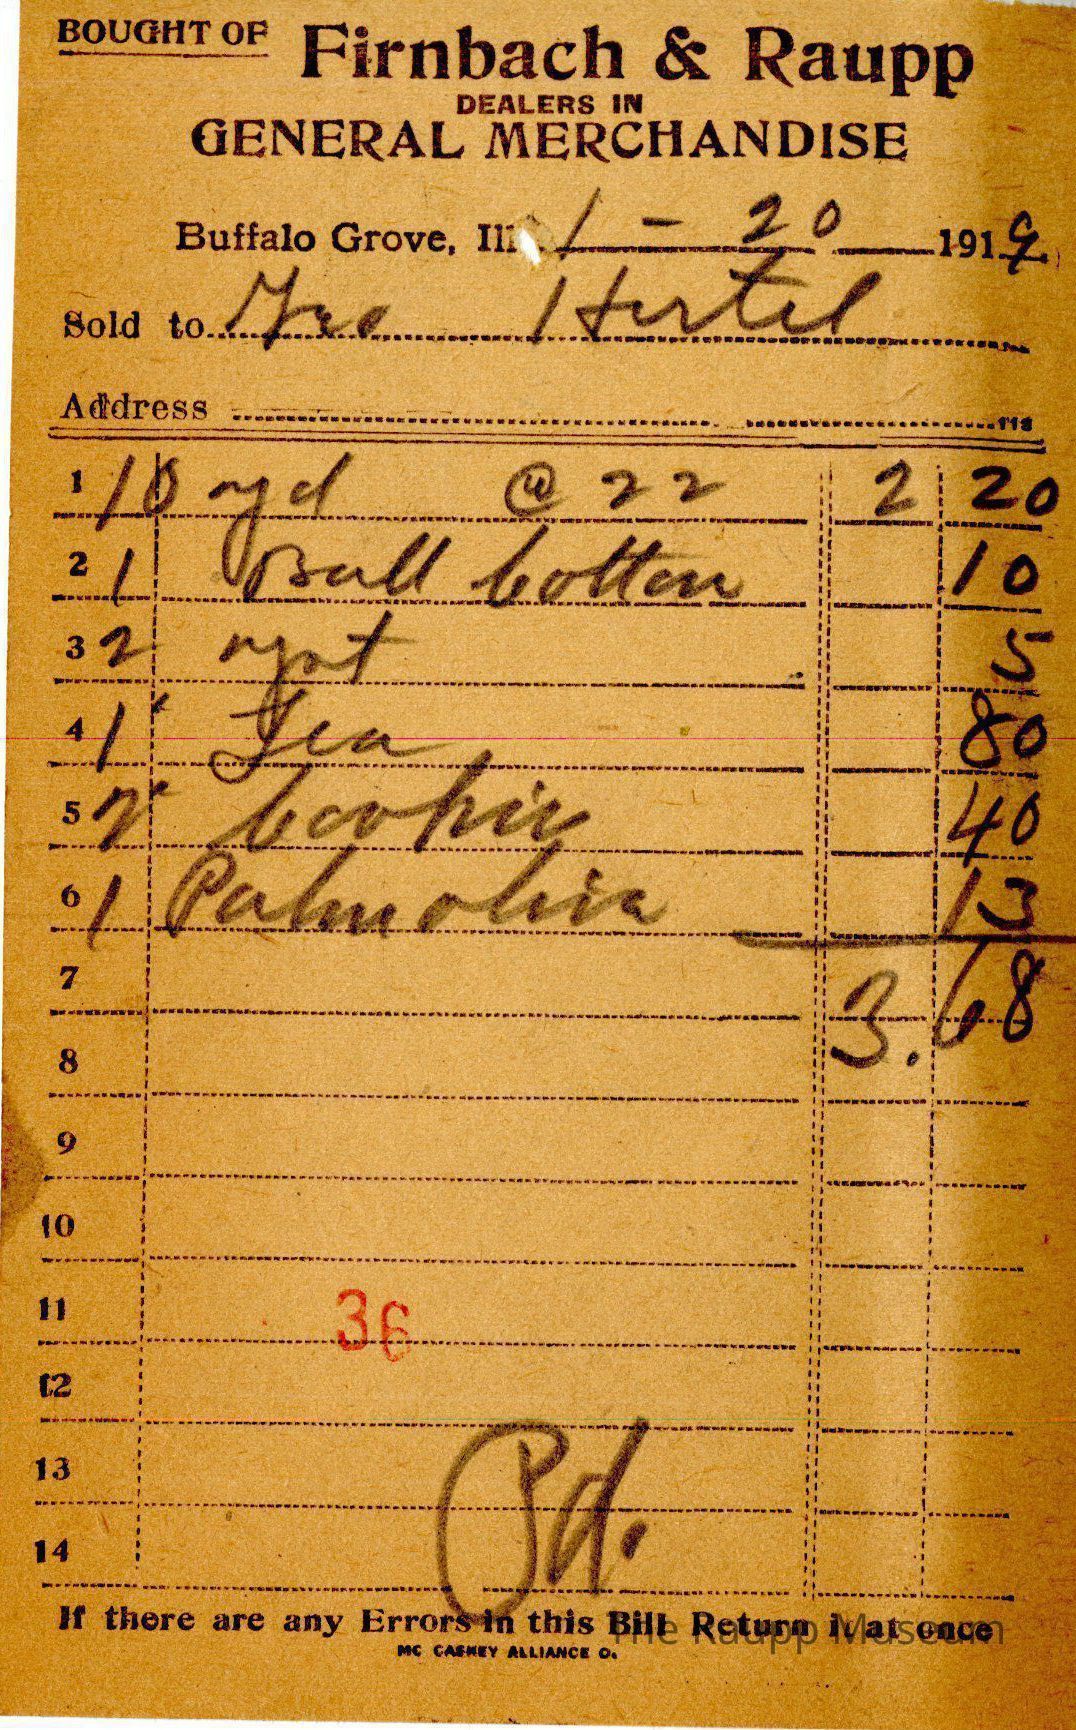 BOUGHT OF Firnbach & Raupp
DEALERS IN
GENERAL MERCHANDISE
Buffalo Grove, Ill. 1 - 20 1919
Sold to Geo Hertel
Address
1 10 yd @ 22 2 20
2 1 Ball Cotton 10
3 2 5
4 1 Tea 80
5 2 40
6 1 Palmolive 13
7 3.68
8
9
10
11 36
12
13
14 Pd.
If there are any Errors in this Bill Return it at once
MC CASKEY ALLIANCE O.
The Raupp Museum